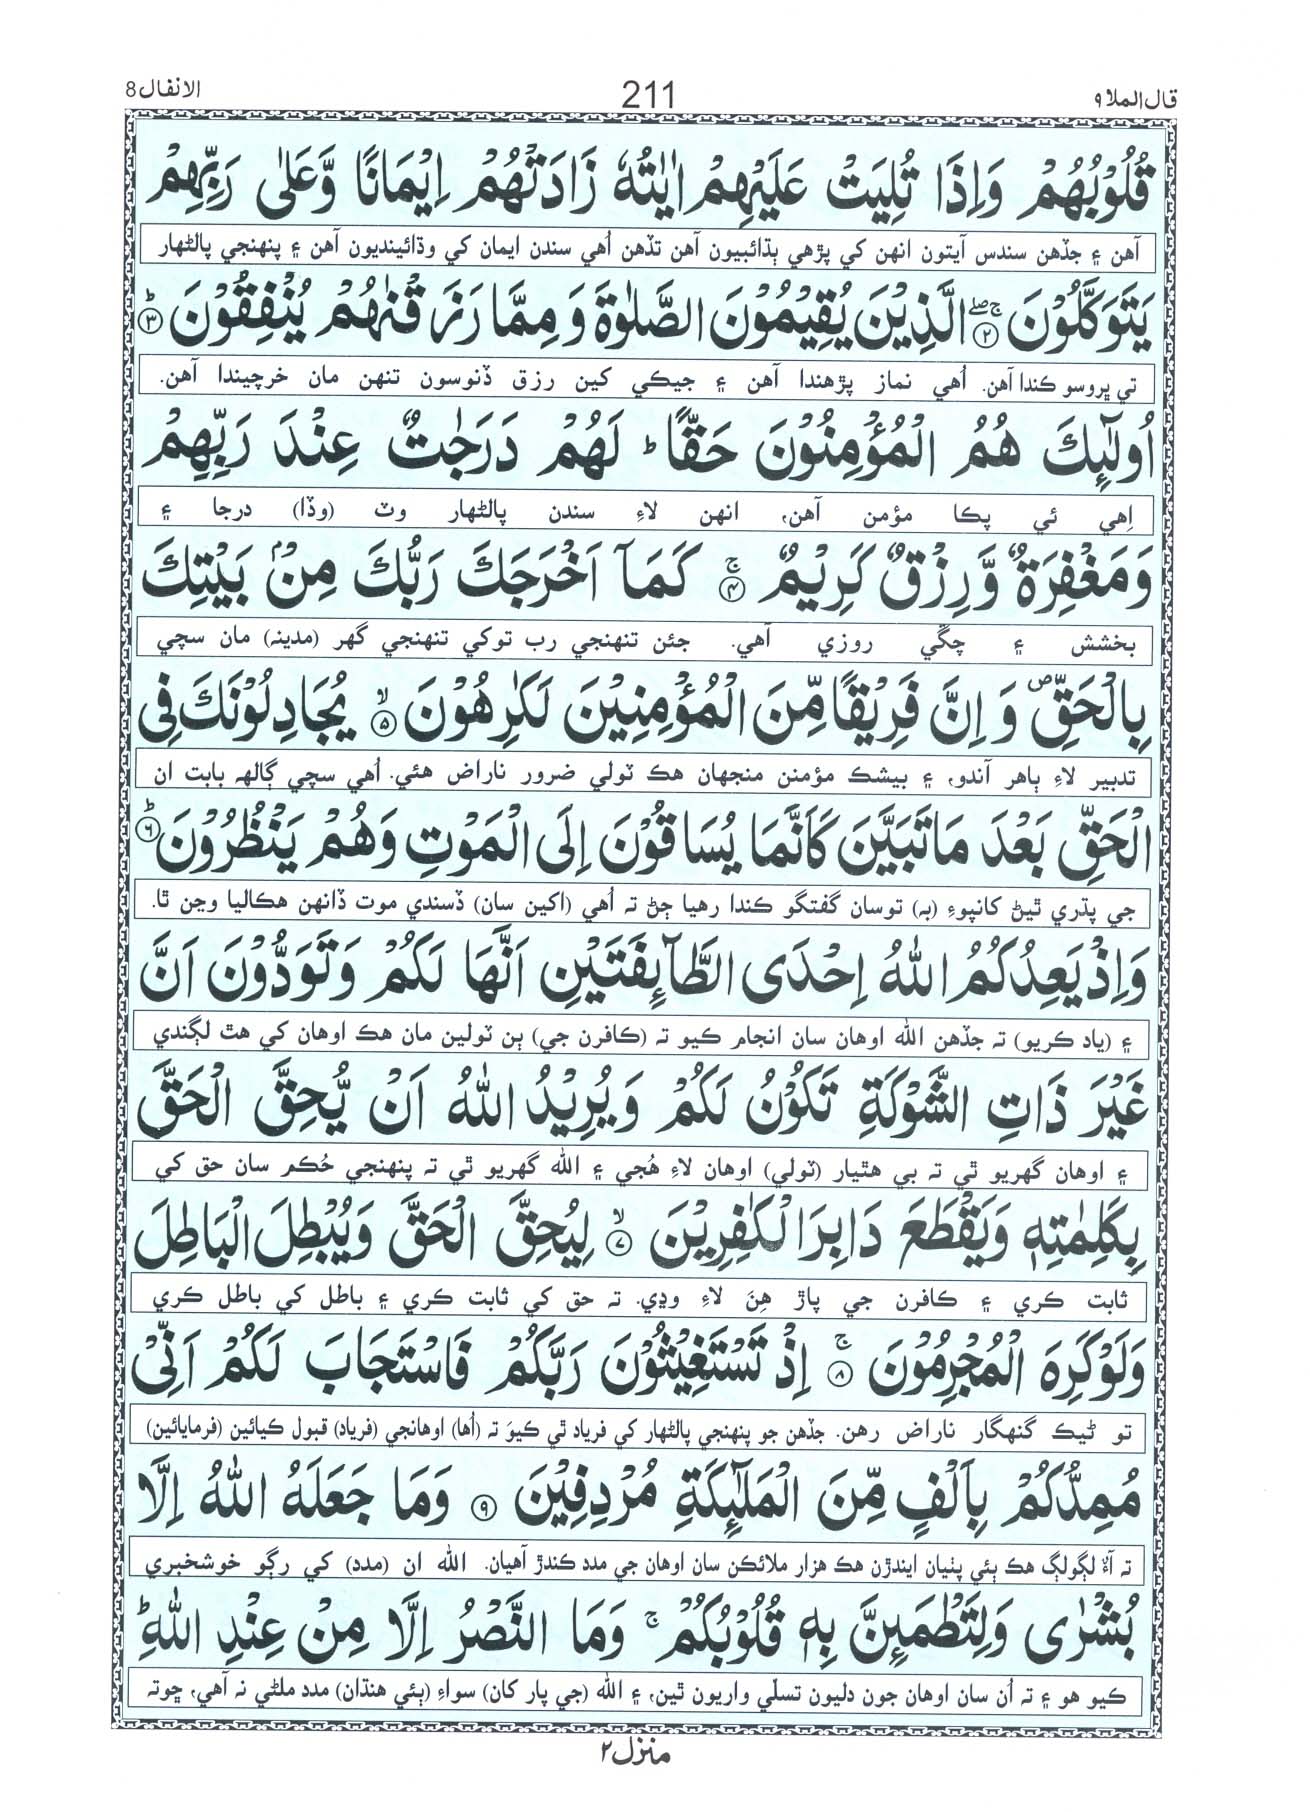 قال الملا ۹ 211 الانفال 8
قُلُوْبُهُمْ وَاِذَا تُلِيَتْ عَلَيْهِمْ اٰيٰتُهٗ زَادَتْهُمْ اِيْمَانًا وَّعَلٰى رَبِّهِمْ
آهن ۽ جڏهن سندس آيتون انهن کي پڙهي ٻڌائبيون آهن تڏهن اُهي سندن ايمان کي وڌائينديون آهن ۽ پنهنجي پالڻهار
يَتَوَكَّلُوْنَ ۲ الَّذِيْنَ يُقِيْمُوْنَ الصَّلٰوةَ وَمِمَّا رَزَقْنٰهُمْ يُنْفِقُوْنَ ۳
تي ڀروسو ڪندا آهن. اُهي نماز پڙهندا آهن ۽ جيڪي کين رزق ڏنوسون تنهن مان خرچيندا آهن.
اُولٰٓئِكَ هُمُ الْمُؤْمِنُوْنَ حَقًّا ؕ لَهُمْ دَرَجٰتٌ عِنْدَ رَبِّهِمْ
اِهي ئي پڪا مؤمن آهن، انهن لاءِ سندن پالڻهار وٽ (وڏا) درجا ۽
وَمَغْفِرَةٌ وَّرِزْقٌ كَرِيْمٌ ۚ ۴ كَمَاۤ اَخْرَجَكَ رَبُّكَ مِنْۢ بَيْتِكَ
بخشش ۽ چڱي روزي آهي. جئن تنهنجي رب توکي تنهنجي گهر (مدينہ) مان سچي
بِالْحَقِّ ۪ وَاِنَّ فَرِيْقًا مِّنَ الْمُؤْمِنِيْنَ لَكٰرِهُوْنَ ۙ ۵ يُجَادِلُوْنَكَ فِى
تدبير لاءِ ٻاهر آندو، ۽ بيشڪ مؤمنن منجهان هڪ ٽولي ضرور ناراض هئي. اُهي سچي ڳالهہ بابت ان
الْحَقِّ بَعْدَ مَا تَبَيَّنَ كَاَنَّمَا يُسَاقُوْنَ اِلَى الْمَوْتِ وَهُمْ يَنْظُرُوْنَ ؕ ۶
جي پڌري ٿيڻ کانپوءِ (بہ) توسان گفتگو ڪندا رهيا ڄڻ تہ اُهي (اکين سان) ڏسندي موت ڏانهن هڪاليا وڃن ٿا.
وَاِذْ يَعِدُكُمُ اللّٰهُ اِحْدَى الطَّآئِفَتَيْنِ اَنَّهَا لَكُمْ وَتَوَدُّوْنَ اَنَّ
۽ (ياد ڪريو) تہ جڏهن الله اوهان سان انجام ڪيو تہ (ڪافرن جي) ٻن ٽولين مان هڪ اوهان کي هٿ لڳندي
غَيْرَ ذَاتِ الشَّوْكَةِ تَكُوْنُ لَكُمْ وَيُرِيْدُ اللّٰهُ اَنْ يُّحِقَّ الْحَقَّ
۽ اوهان گهريو ٿي تہ بي هٿيار (ٽولي) اوهان لاءِ هُجي ۽ الله گهريو ٿي تہ پنهنجي حُڪم سان حق کي
بِكَلِمٰتِهٖ وَيَقْطَعَ دَابِرَ الْكٰفِرِيْنَ ۙ ۷ لِيُحِقَّ الْحَقَّ وَيُبْطِلَ الْبَاطِلَ
ثابت ڪري ۽ ڪافرن جي پاڙ هِنَ لاءِ وڍي. تہ حق کي ثابت ڪري ۽ باطل کي باطل ڪري
وَلَوْ كَرِهَ الْمُجْرِمُوْنَ ۚ ۸ اِذْ تَسْتَغِيْثُوْنَ رَبَّكُمْ فَاسْتَجَابَ لَكُمْ اَنِّىْ
تو ڻيڪ گنهگار ناراض رهن. جڏهن جو پنهنجي پالڻهار کي فرياد ٿي ڪيوَ تہ (اُها) اوهانجي (فرياد) قبول ڪيائين (فرمايائين)
مُمِدُّكُمْ بِاَلْفٍ مِّنَ الْمَلٰٓئِكَةِ مُرْدِفِيْنَ ۹ وَمَا جَعَلَهُ اللّٰهُ اِلَّا
تہ آءٌ لڳولڳ هڪ ٻئي پٺيان ايندڙن هڪ هزار ملائڪن سان اوهان جي مدد ڪندڙ آهيان. الله ان (مدد) کي رڳو خوشخبري
بُشْرٰى وَلِتَطْمَئِنَّ بِهٖ قُلُوْبُكُمْ ۚ وَمَا النَّصْرُ اِلَّا مِنْ عِنْدِ اللّٰهِ ؕ
ڪيو هو ۽ تہ اُن سان اوهان جون دليون تسلّي واريون ٿين، ۽ الله (جي پار کان) سواءِ (ٻئي هنڌان) مدد ملڻي نہ آهي، ڇوتہ
منزل ۲